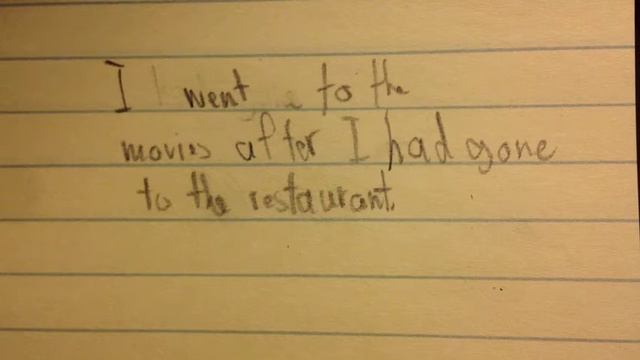 I went to the
movies after I had gone
to the restaurant.